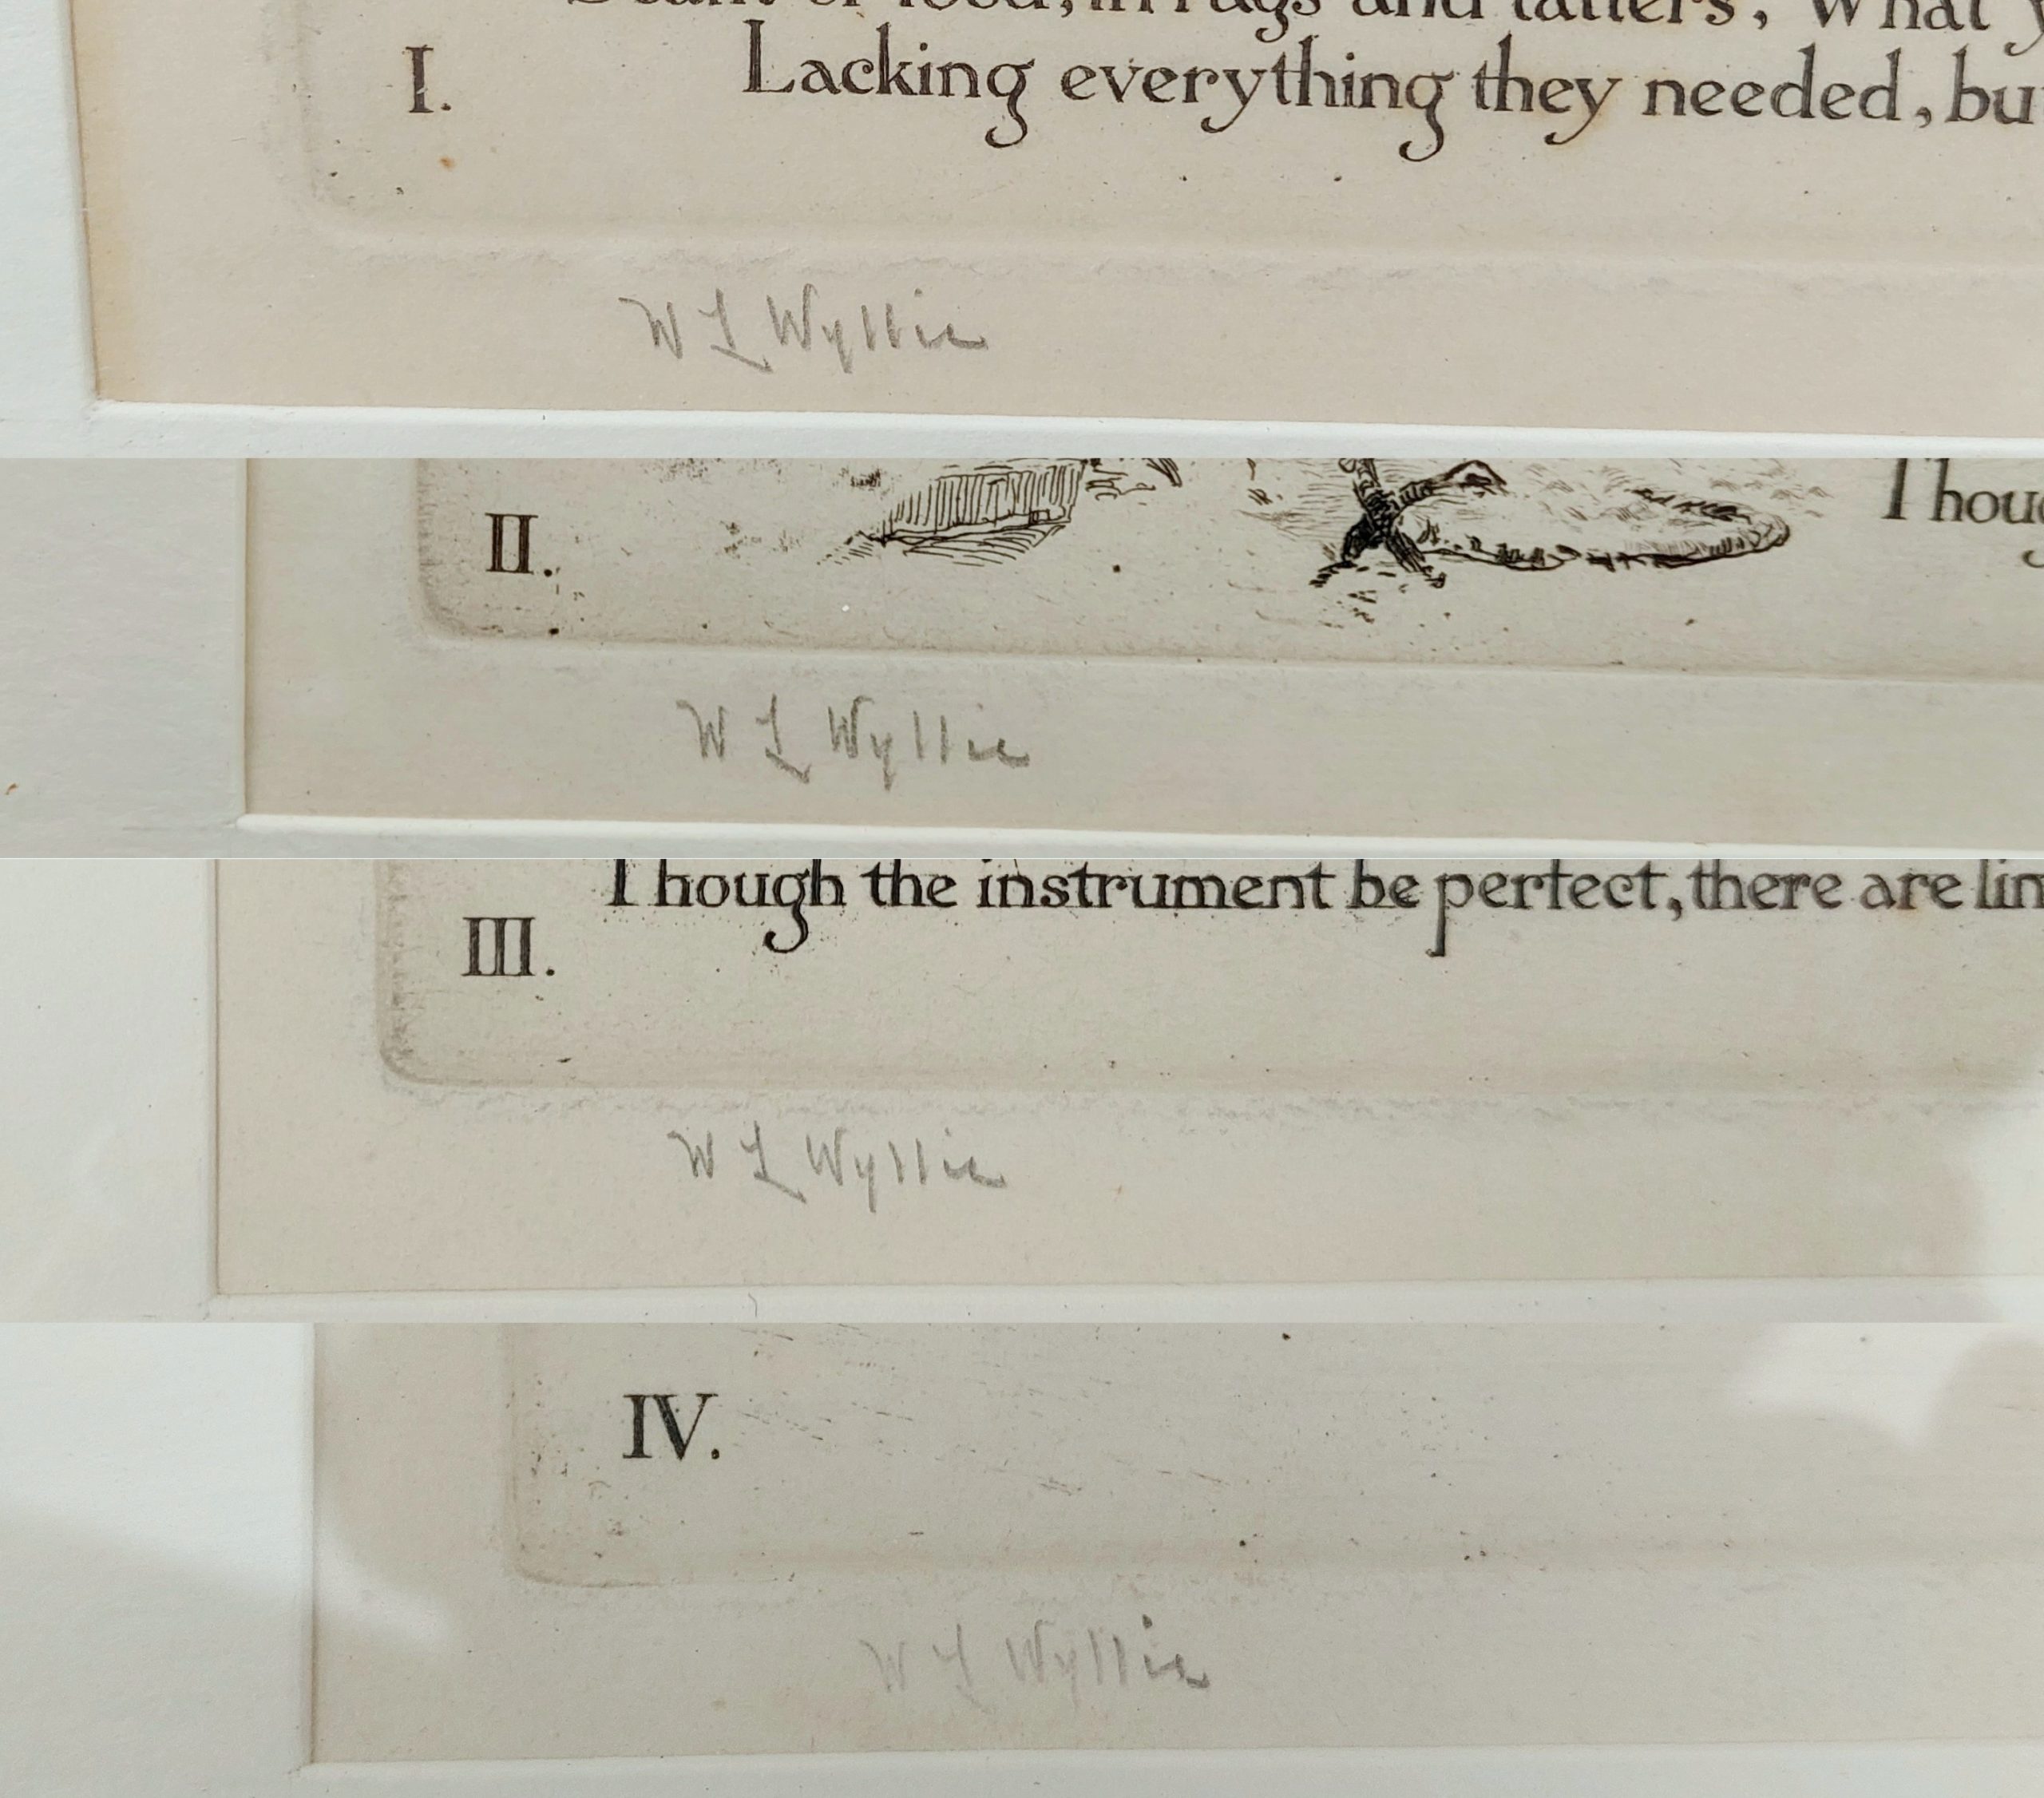 Scant of food, in rags and tatters, What
I.
Lacking everything they needed, but
W L Wyllie
II.
Though
W L Wyllie
Though the instrument be perfect, there are
III.
W L Wyllie
IV.
W L Wyllie